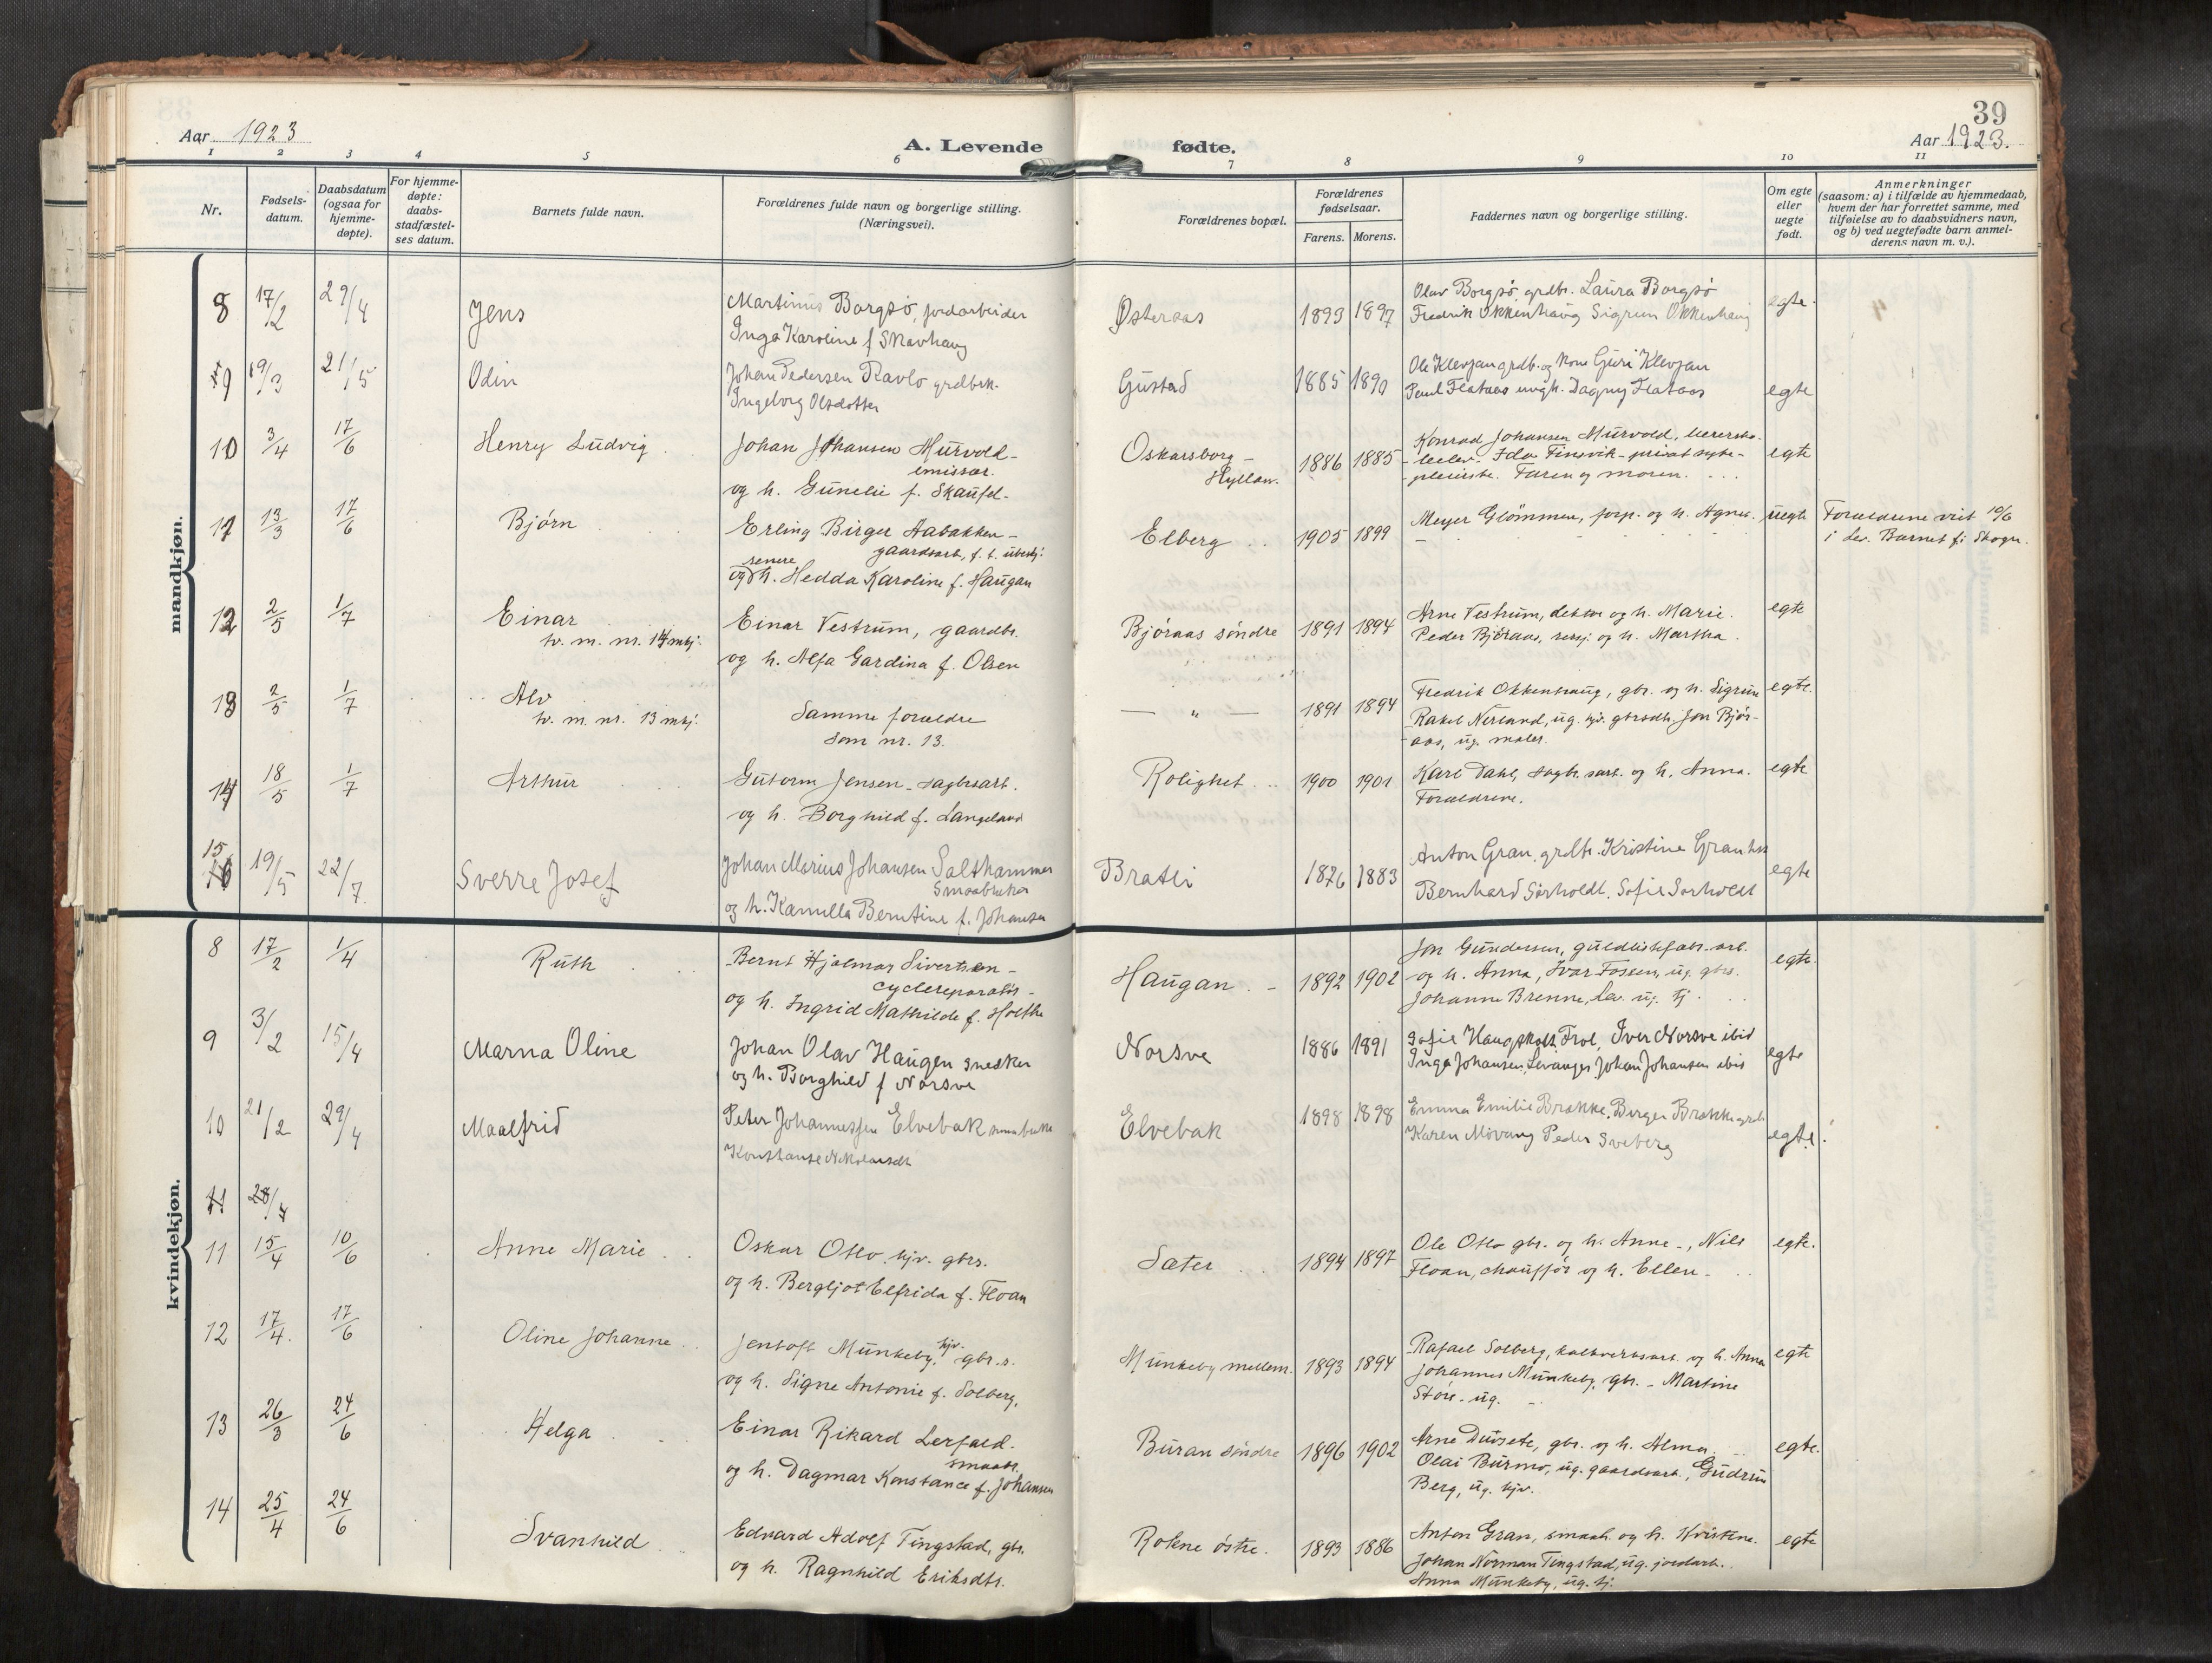 39
Aar 1923
A. Levende fødte.
Aar 1923.
1 2 3 4 5 6 7 8 9 10 11
Nr.
Fødsels-
datum.
Daabsdatum
(ogsaa for
hjemme-
døpte).
For hjemme-
døpte:
daabs-
stadfæstel-
ses datum.
Barnets fulde navn.
Forældrenes fulde navn og borgerlige stilling.
(Næringsvei).
Forældrenes bopæl.
Forældrenes
fødselsaar.
Farens. Morens.
Faddernes navn og borgerlige stilling.
Om egte
eller
uegte
født.
Anmerkninger
(saasom: a) i tilfælde av hjemmedaab,
hvem der har forrettet samme, med
tilføielse av to daabsvidners navn,
og b) ved uegtefødte barn anmel-
derens navn m. v.).
mandkjøn.
8 17/2 29/4 Jens
Martinus Borgsö, jordarbeider
Inga Karoline f Skavhaug
Østeraas 1893 1897
Olav Borgsö, grdbr. Laura Borgsö
Fredrik Okkenhaug Sigrun Okkenhaug
egte.
9 19/3 21/5 Odin
Johan Pedersen Ravlo grdbruk.
Ingeborg Olsdotter
Gustad 1885 1890
Ole Klevjan grdb. og kone Guri Klevjan
Paul Flataas ungk. Dagny Flataas
egte
10 3/4 17/6 Henry Ludvig
Johan Johansen Murvold -
emissær.
og h. Gunelie f. Skaufel-
Oskarsborg -
Hyllan. 1886 1885
Konrad Johansen Murvold,
Ida Finsvik - privat syke-
pleierske. Faren og moren.
egte
11 13/3 17/6 Bjørn
Erling Birger Aabakken -
gaardsarb,
senere
og h. Hedda Karoline f. Haugan
Elberg 1905 1899
Meyer Glömmen, forp. og h. Agnes.
uegte
Forældrene viet 10/6
i Lev. Barnet f. i Skogn.
12 2/5 1/7 Einar
tv. m. nr. 14 mkj.
Einar Vestrum, gaardbr.
og h. Alfa Gardina f. Olsen
Bjøraas søndre 1891 1894
Arne Vestrum, lektor og h. Marie.
Peder Bjøraas, og h. Martha.
egte
13 2/5 1/7 Alv
tv. m. nr. 13 mkj.
Samme forældre
som nr. 13.
— " — 1891 1894
Fredrik Okkenhaug, gbr. og h. Sigrun
Rakel Nesland, ug. hjv. gbrsdtr. Jon Bjør-
aas, ug. maler.
egte.
14 18/5 1/7 Arthur
Gutorm Jensen - sagbrsarb.
og h. Borghild f. Langeland
Rolighet 1900 1901
Karl Dahl, sagbr.sarb. og h. Anna.
Forældrene.
egte
15 19/5 22/7. Sverre Josef
Johan Marius Johansen Salthammer
Smaabruker
og h. Kamilla Berntine f. Johansen
Bratli 1876 1883
Anton Gran, grdbr. Kristine Gran
Bernhard Sörholdt, Sofie Sorholdt
egte
kvindekjøn.
8 17/2 1/4 Ruth
Bernt Hjalmar Sivertsen -
cyclereparatör -
og h. Ingrid Mathilde f. Holthe
Haugan. - 1892 1902
Jon Gundersen, guldlistefabr. arb.
og h. Anna, Ivar Fossen, ug. gbrs.
Johanne Brenne, Lev. ug. tj.
egte.
9 3/2 15/4 Marna Oline
Johan Olav Haugen snekker
og h. Borghild f Norsve
Norsve 1886 1891
Sofie Haugskott Frol, Iver Norsve ibid
Inga Johansen, Levanger, Johan Johansen ibid
egte
10 21/2 29/4 Maalfrid
Peter Johannessen Elvebak smaabruker
Konstanse Nikolaisdt
Elvebak 1898 1898
Emma Emilie Brakke, Birger Brakke grdb
Karen Movang Peder Sveberg
egte!
11 28/4
11 15/4 10/6 Anne Marie
Oskar Otlo. hjv. gbrs.
og h. Bergljot Elfrida f. Floan
Sæter 1894 1897
Ole Otlo gbr. og h. Anne -, Nils
Floan, chauffør og h. Ellen -
egte.
12 17/4. 17/6 Oline Johanne
Jentoft Munkeby, hjv. gbr.s.
og h. Signe Antonie f. Solberg,
Munkeby mellem. 1893 1894
Rafael Solberg, kalkverksarb. og h. Anna
Johannes Munkeby, gbr. - Martine
Støre. ug.
egte
13 26/3 24/6 Helga
Einar Rikard Lerfald.
smaabr.
og h. Dagmar Konstance f. Johansen
Buran søndre 1896 1902
Arne Duvsete, gbr. og h. Alma.
Olai Burmo, ug. gaardsarb., Gudrun
Berg, ug. hjv.
egte.
14 25/4 24/6 Svanhild
Edvard Adolf Tingstad, gbr.
og h. Ragnhild Eriksdtr.
Rokne østre. 1893 1886
Anton Gran, smaab. og h. Kristine.
Johan Norman Tingstad, ug. jordarb.
Anna Munkeby, ug. tj.
egte